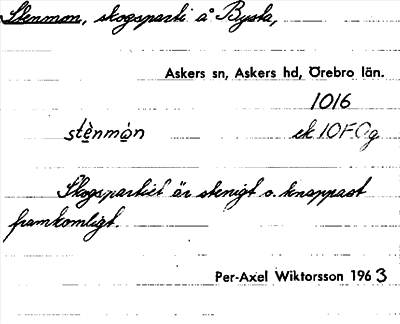 Stenmon, skogsparti å Bysta,
Askers sn, Askers hd, Örebro län.
1016
stènmón ek 10F Og
Skogspartiet är stenigt o. knappast
framkomligt.
Per-Axel Wiktorsson 1963